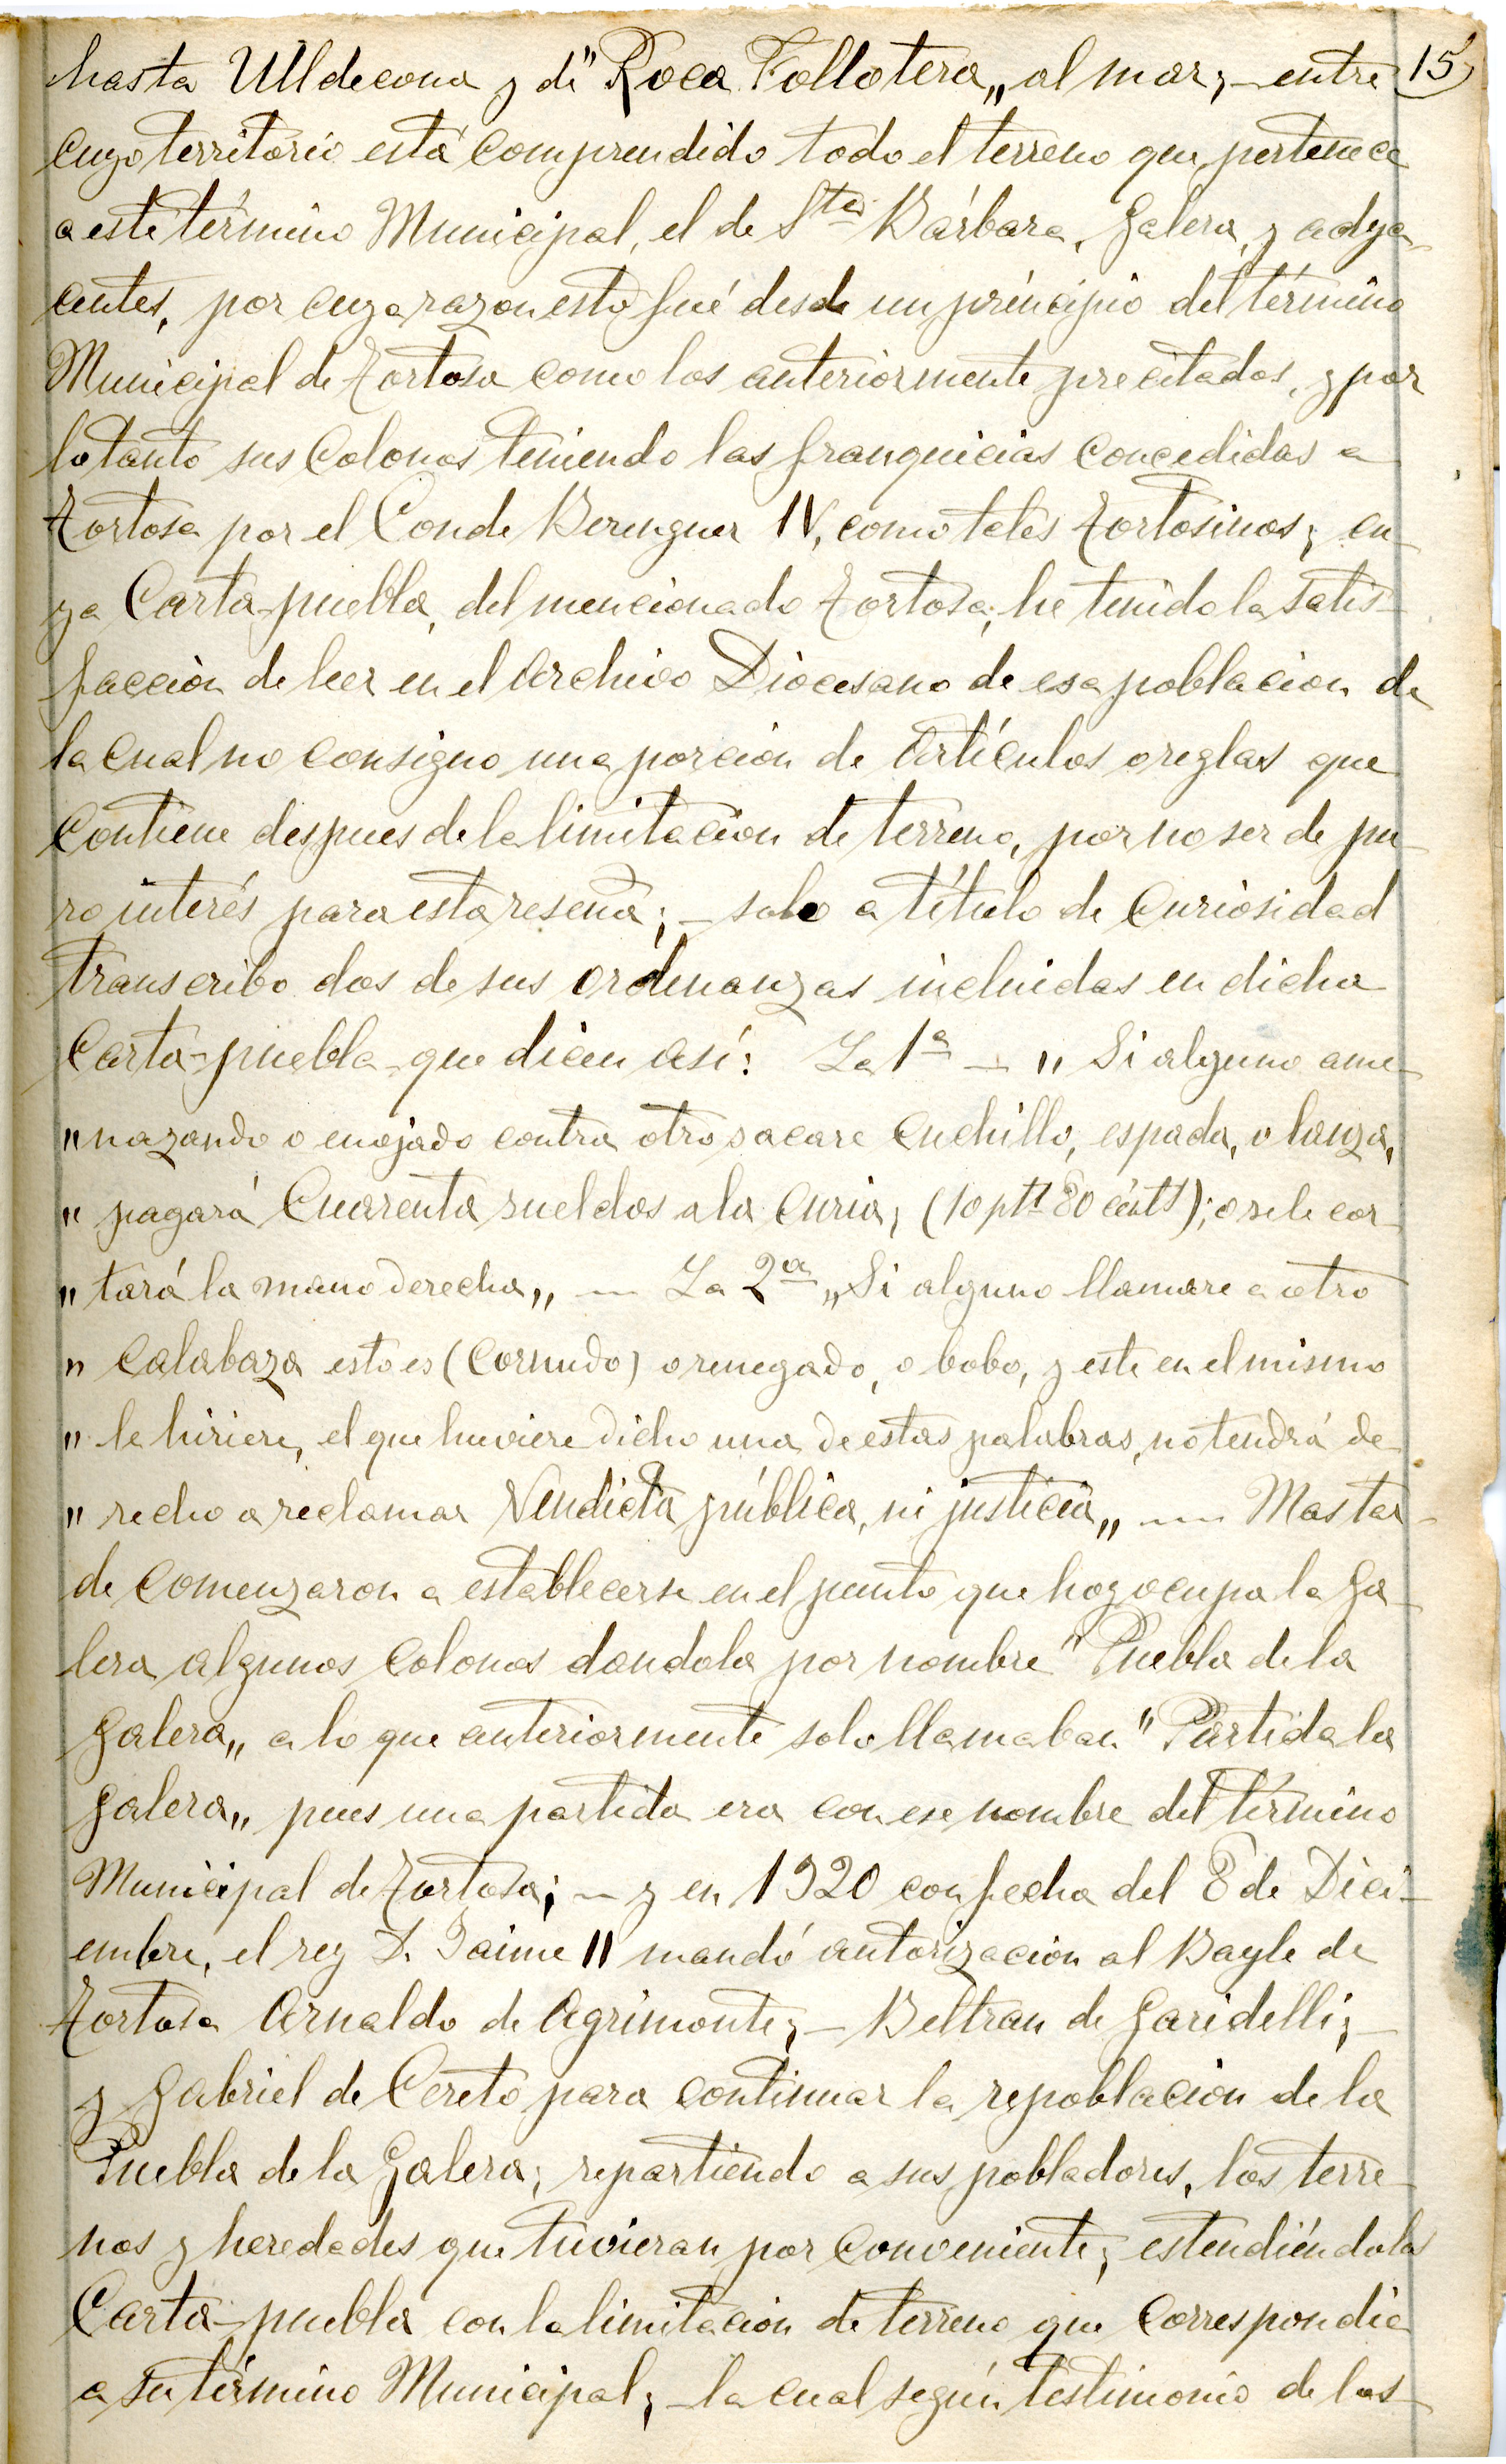 hasta Ulldecona y de "Roca Follotera„ al mar; – entre 15
cuyo territorio está comprendido todo el terreno que pertenece
a este término Municipal, el de Sta Bárbara, Galera, y adya-
centes, por cuya razon esto fué desde un principio del término
Municipal de Tortosa como los anteriormente precitados, y por
lo tanto sus Colonos teniendo las franquicias concedidas a
Tortosa por el Conde Berenguer IV, como tales Tortosinos; cu-
ya Carta-puebla, del mencionado Tortosa; he tenido la satis-
facción de leer en el Archivo Diocesano de esa poblacion de
la cual no consigno una porcion de Artículos o reglas que
contiene despues de la limitacion de terreno, por no ser de pu-
ro interés para esta reseña; – solo a título de Curiosidad
transcribo dos de sus Ordenanzas incluidas en dicha
Carta-puebla que dicen así: La 1ª – „ Si alguno ame-
„nazando o enojado contra otro sacare Cuchillo, espada, o lanza,
„ pagará Cuarenta sueldos a la Curia, (10 ptts 80 cénts); o se le cor-
„ tará la mano derecha„ – La 2ª „Si alguno llamare a otro
„ Calabaza esto es (Cornudo) o renegado, o bobo, y este en el mismo
„ le hiriere, el que huviere dicho una de estas palabras, no tendrá de-
„ recho a reclamar Vendicta pública, ni justicia„ — Mas tar-
de Comenzaron a establecerse en el punto que hoy ocupa la Ga-
lera algunos Colonos dandola por nombre "Puebla de la
Galera„ a lo que anteriormente solo llamaban "Partida la
Galera„ pues una partida era con ese nombre del término
Municipal de Tortosa; – y en 1320 con fecha del 8 de Dici-
embre, el rey D. Jaime II mandó autorizacion al Bayle de
Tortosa Arnaldo de Agrimonte; – Beltran de Garidelli; –
y Gabriel de Cereto para continuar la repoblacion de la
Puebla de la Galera; repartiendo a sus pobladores, los terre-
nos y heredades que tuvieran por conveniente; estendiéndola
Carta-puebla con la limitacion de terreno que Correspondia
a su término Municipal; – la cual según testimonio de los